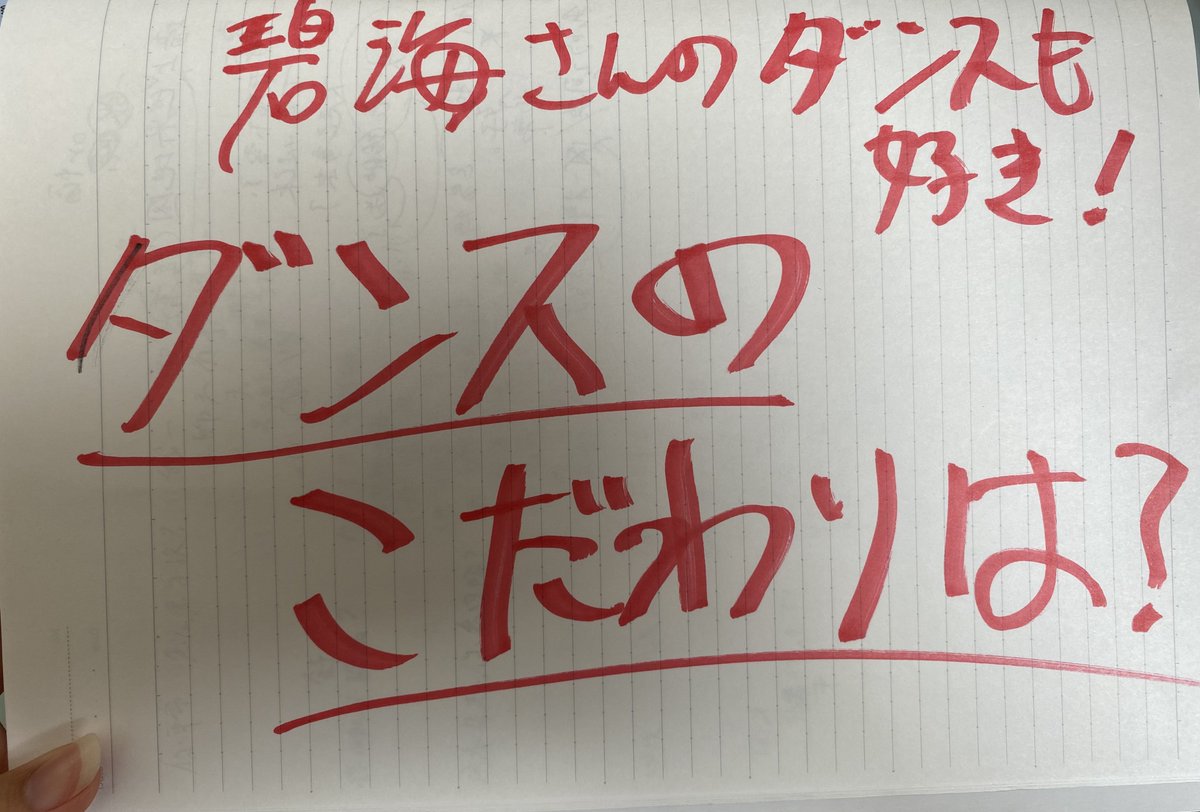 碧海さんのダンスも
好き!
ダンスの
こだわりは?